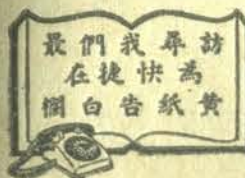 訪尋我們最
為快捷在
黃紙告白欄